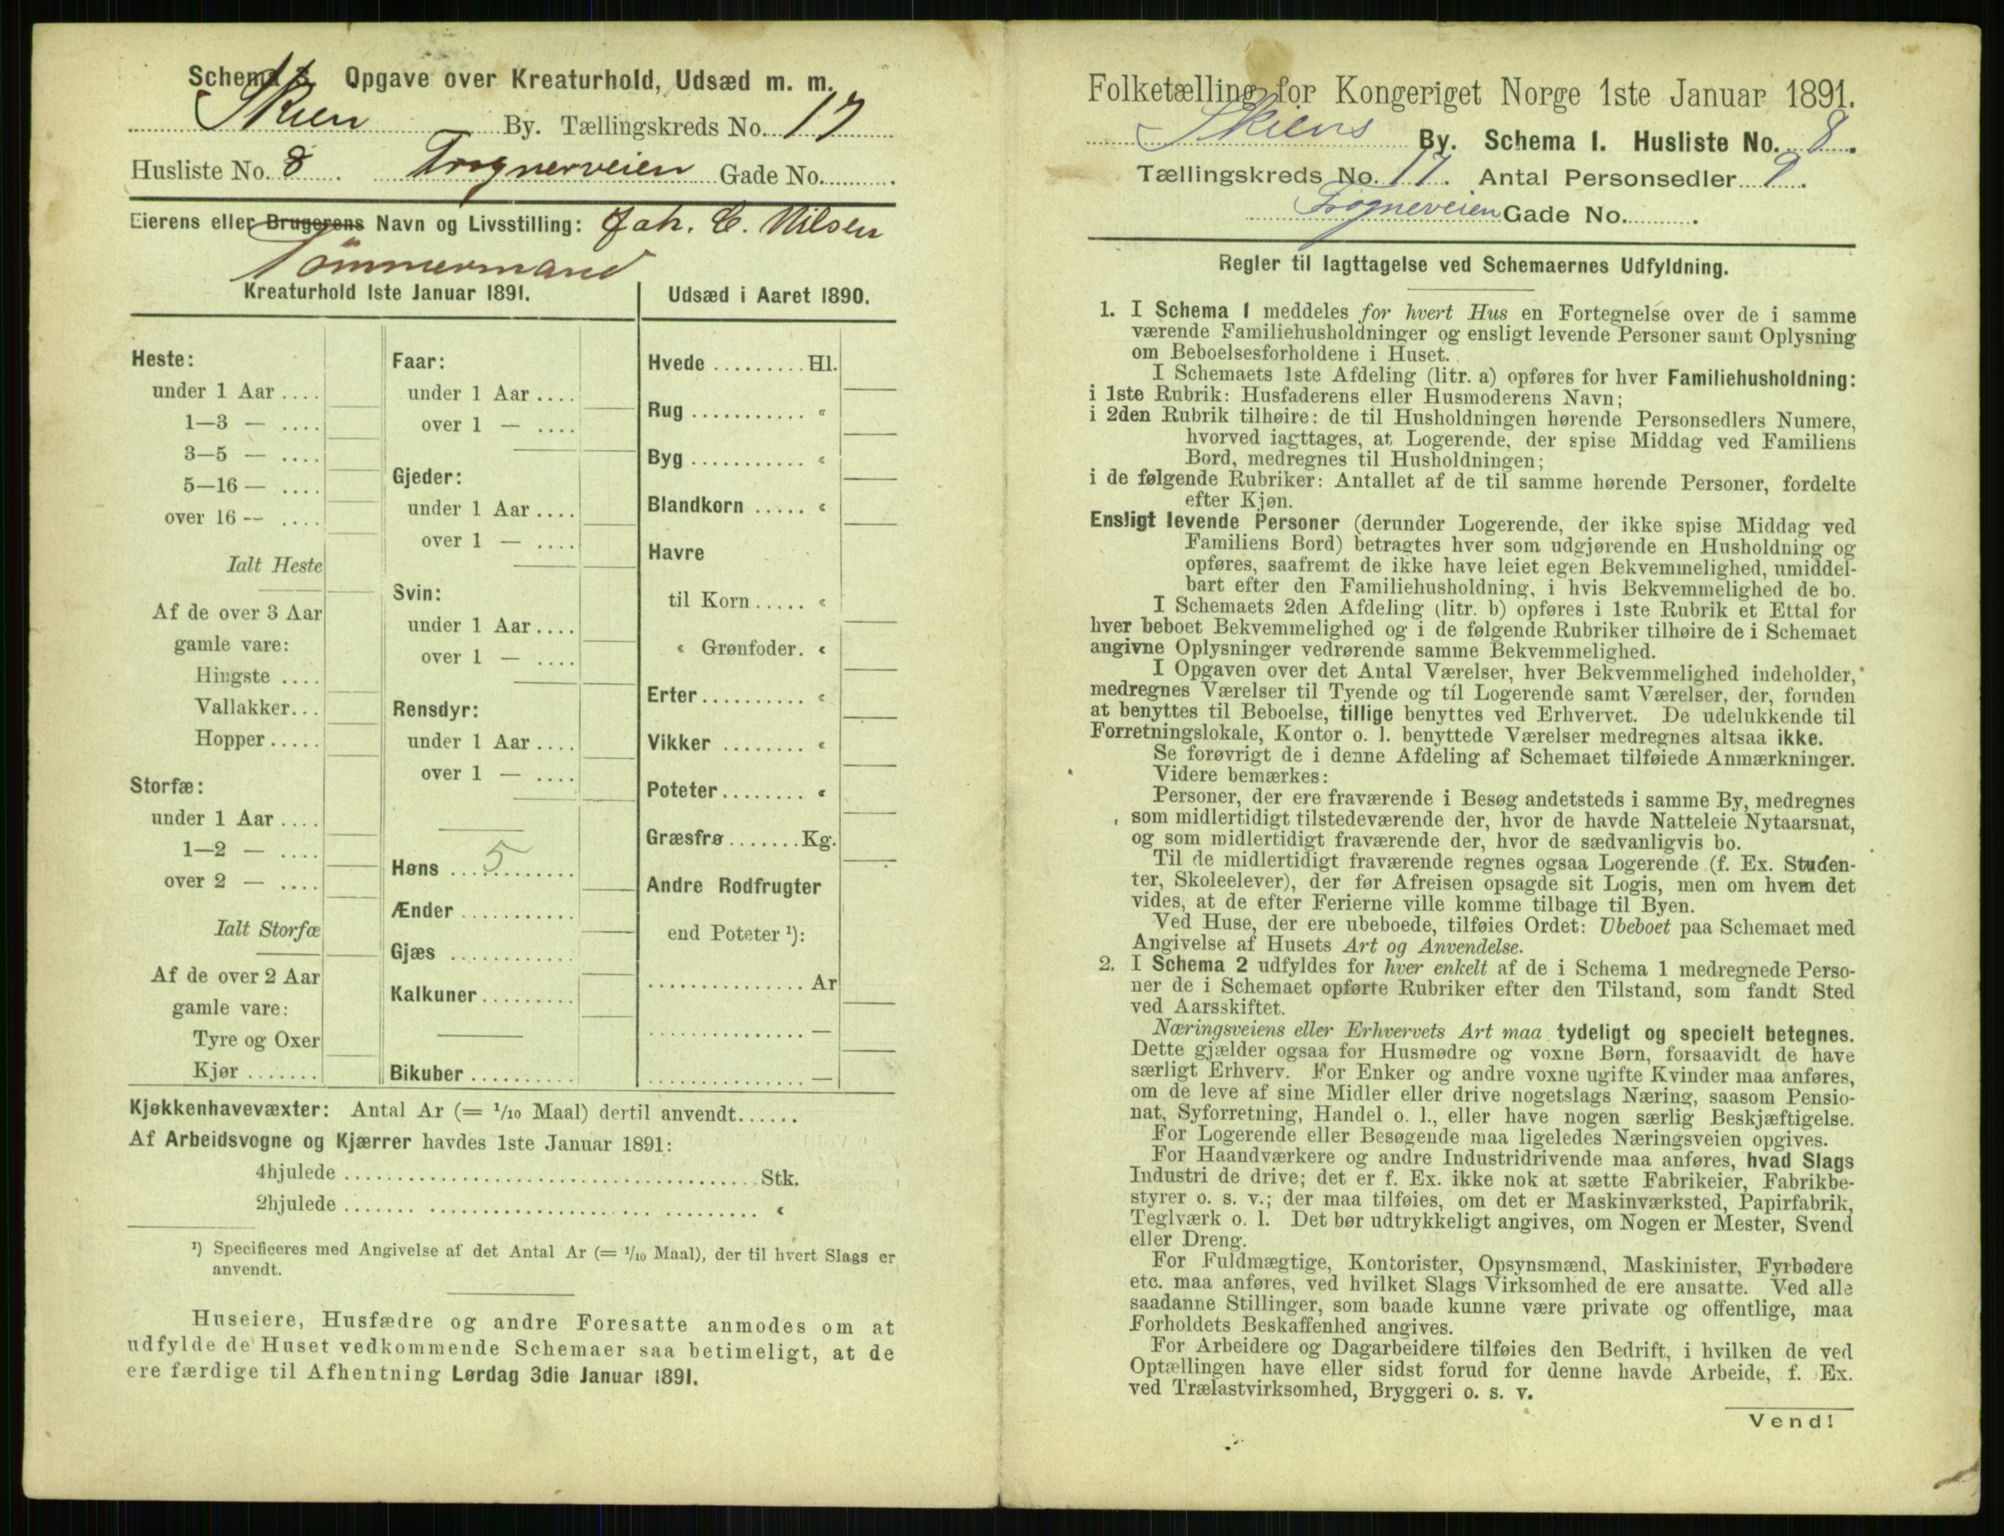 Schema 3. Opgave over Kreaturhold, Udsæd m. m.
Skien By. Tællingskreds No. 17
Husliste No. 8. Frognerveien Gade No. .
Eierens eller Brugerens Navn og Livsstilling: Joh. C. Nilsen
Tömmermand
Kreaturhold 1ste Januar 1891.
Heste:
under 1 Aar
1—3 —
3—5 —
5—16 —
over 16 —
Ialt Heste
Af de over 3 Aar
gamle vare:
Hingste
Vallakker
Hopper
Storfæ:
under 1 Aar
1—2 —
over 2 —
Ialt Storfæ
Af de over 2 Aar
gamle vare:
Tyre og Oxer
Kjør
Faar:
under 1 Aar
over 1 —
Gjeder:
under 1 Aar
over 1 —
Svin:
under 1 Aar
over 1 —
Rensdyr:
under 1 Aar
over 1 —
Høns 5
Ænder
Gjæs
Kalkuner
Bikuber
Udsæd i Aaret 1890.
Hvede Hl.
Rug «
Byg «
Blandkorn «
Havre
til Korn «
« Grønfoder. «
Erter «
Vikker «
Poteter «
Græsfrø Kg.
Andre Rodfrugter
end Poteter ¹):
Ar
—
—
Kjøkkenhavevæxter: Antal Ar (= 1/10 Maal) dertil anvendt
Af Arbeidsvogne og Kjærrer havdes 1ste Januar 1891:
4hjulede Stk.
2hjulede «
¹) Specificeres med Angivelse af det Antal Ar (= 1/10 Maal), der til hvert Slags er
anvendt.
Huseiere, Husfædre og andre Foresatte anmodes om at
udfylde de Huset vedkommende Schemaer saa betimeligt, at de
ere færdige til Afhentning Lørdag 3die Januar 1891.
Folketælling for Kongeriget Norge 1ste Januar 1891.
Skiens By. Schema 1. Husliste No. 8.
Tællingskreds No. 17. Antal Personsedler 9.
Frogneveien Gade No. .
Regler til Iagttagelse ved Schemaernes Udfyldning.
1. I Schema 1 meddeles for hvert Hus en Fortegnelse over de i samme
værende Familiehusholdninger og ensligt levende Personer samt Oplysning
om Beboelsesforholdene i Huset.
I Schemaets 1ste Afdeling (litr. a) opføres for hver Familiehusholdning:
i 1ste Rubrik: Husfaderens eller Husmoderens Navn;
i 2den Rubrik tilhøire: de til Husholdningen hørende Personsedlers Numere,
hvorved iagttages, at Logerende, der spise Middag ved Familiens
Bord, medregnes til Husholdningen;
i de følgende Rubriker: Antallet af de til samme hørende Personer, fordelte
efter Kjøn.
Ensligt levende Personer (derunder Logerende, der ikke spise Middag ved
Familiens Bord) betragtes hver som udgjørende en Husholdning og
opføres, saafremt de ikke have leiet egen Bekvemmelighed, umiddel-
bart efter den Familiehusholdning, i hvis Bekvemmelighed de bo.
I Schemaets 2den Afdeling (litr. b) opføres i 1ste Rubrik et Ettal for
hver beboet Bekvemmelighed og i de følgende Rubriker tilhøire de i Schemaet
angivne Oplysninger vedrørende samme Bekvemmelighed.
I Opgaven over det Antal Værelser, hver Bekvemmelighed indeholder,
medregnes Værelser til Tyende og til Logerende samt Værelser, der, foruden
at benyttes til Beboelse, tillige benyttes ved Erhvervet. De udelukkende til
Forretningslokale, Kontor o. l. benyttede Værelser medregnes altsaa ikke.
Se forøvrigt de i denne Afdeling af Schemaet tilføiede Anmærkninger.
Videre bemærkes:
Personer, der ere fraværende i Besøg andetsteds i samme By, medregnes
som midlertidigt tilstedeværende der, hvor de havde Natteleie Nytaarsnat,
og som midlertidigt fraværende der, hvor de sædvanligvis bo.
Til de midlertidigt fraværende regnes ogsaa Logerende (f. Ex. Studen-
ter, Skoleelever), der før Afreisen opsagde sit Logis, men om hvem det
vides, at de efter Ferierne ville komme tilbage til Byen.
Ved Huse, der ere ubeboede, tilføies Ordet: Ubeboet paa Schemaet med
Angivelse af Husets Art og Anvendelse.
2. I Schema 2 udfyldes for hver enkelt af de i Schema 1 medregnede Perso-
ner de i Schemaet opførte Rubriker efter den Tilstand, som fandt Sted
ved Aarsskiftet.
Næringsveiens eller Erhvervets Art maa tydeligt og specielt betegnes.
Dette gjælder ogsaa for Husmødre og voxne Børn, forsaavidt de have
særligt Erhverv. For Enker og andre voxne ugifte Kvinder maa anføres,
om de leve af sine Midler eller drive nogetslags Næring, saasom Pensio-
nat, Syforretning, Handel o. l., eller have nogen særlig Beskjæftigelse.
For Logerende eller Besøgende maa ligeledes Næringsveien opgives.
For Haandværkere og andre Industridrivende maa anføres, hvad Slags
Industri de drive; det er f. Ex. ikke nok at sætte Fabrikeier, Fabrikbe-
styrer o. s. v.; der maa tilføies, om det er Maskinværksted, Papirfabrik,
Teglværk o. l. Det bør udtrykkeligt angives, om Nogen er Mester, Svend
eller Dreng.
For Fuldmægtige, Kontorister, Opsynsmænd, Maskinister, Fyrbødere
etc. maa anføres, ved hvilket Slags Virksomhed de ere ansatte. Ved alle
saadanne Stillinger, som baade kunne være private og offentlige, maa
Forholdets Beskaffenhed angives.
For Arbeidere og Dagarbeidere tilføies den Bedrift, i hvilken de ved
Optællingen have eller sidst forud for denne havde Arbeide, f. Ex.
ved Trælastvirksomhed, Bryggeri o. s. v.
Vend!